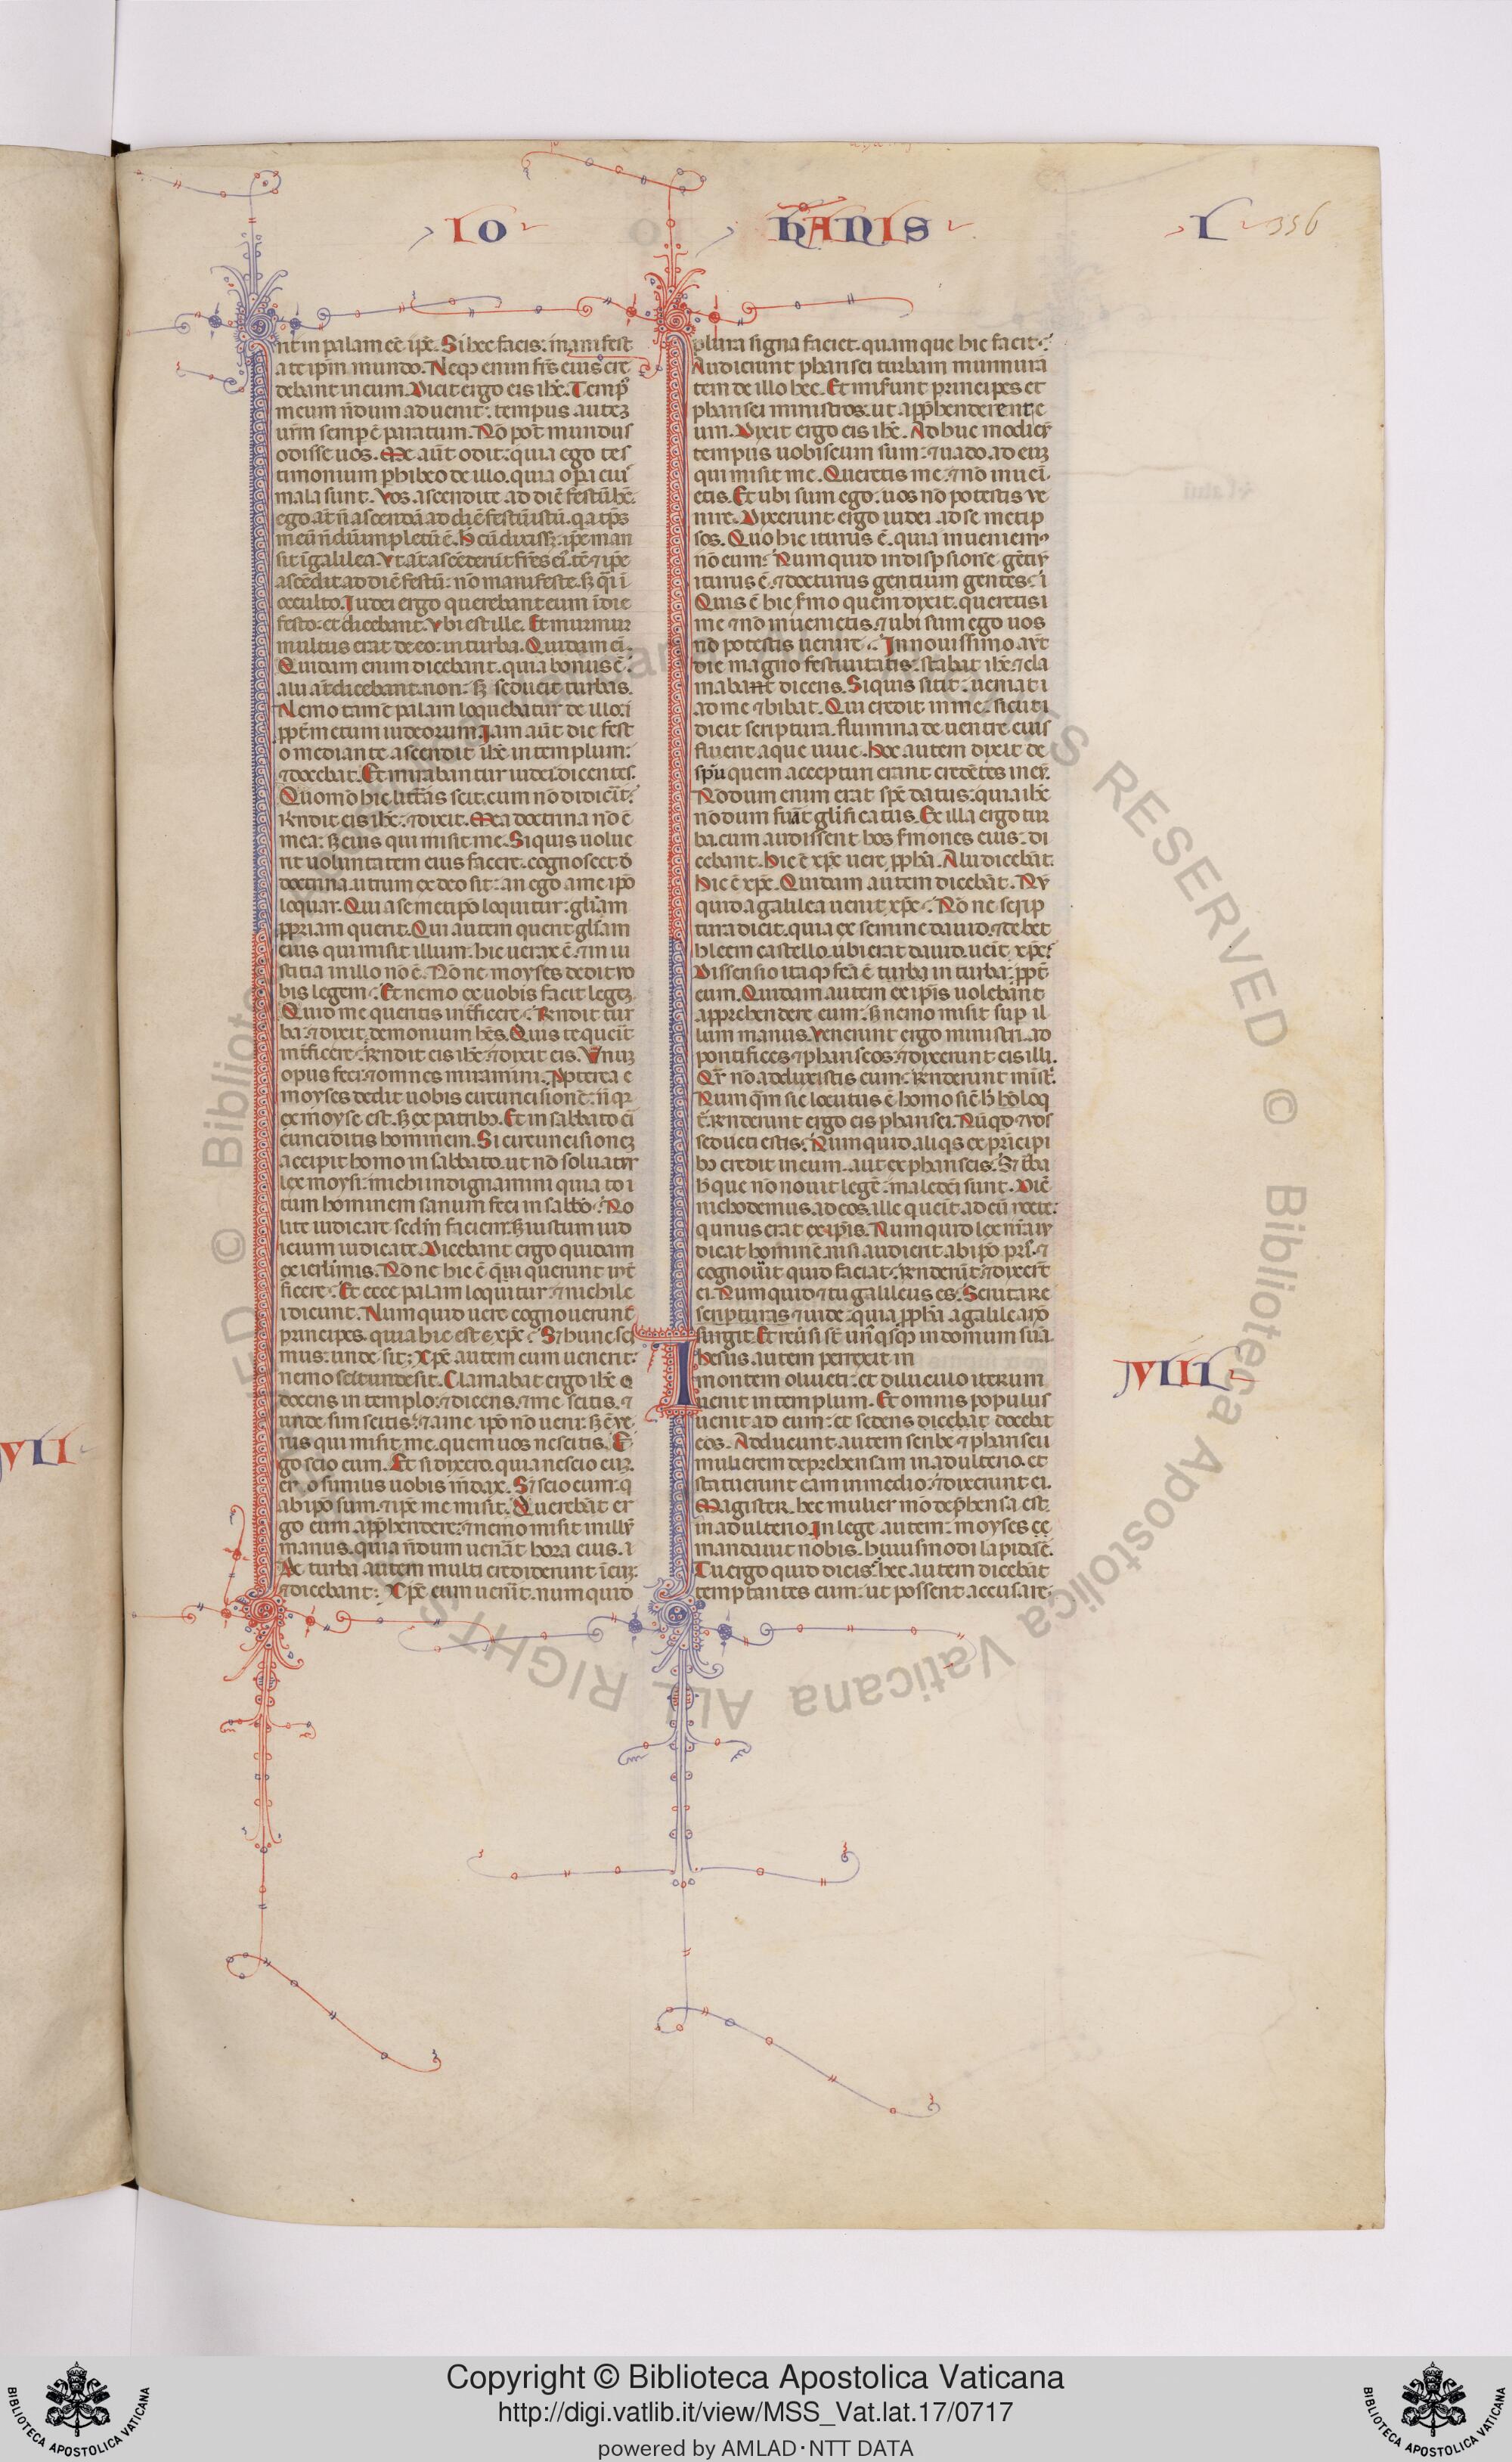 IO
HANIS
L
356
rit in palam eē ipē. Si hec facis: manifest
a te ipm̄ mundo. Neqꝫ enim frēs eius cre
debant in eum. Dicit ergo eis ihē. Temp᷒
meum nōdum aduenit: tempus auteꝫ
urm̄ semp ē paratum. Nō pot̄ mundus
odisse uos. Me aūt odit: quia ego tes
timonium phibeo de illo. quia opa eius
mala sunt. Vos ascendite ad diē festū hē.
ego at̄ n̄ ascendā ad diē festū istū. qa tp̄s
meū n̄dū impletū ē. h̄ cū dixissꝫ: ipē man
sit ī galilea. Vt at̄ ascēderūt frēs eiꝰ. tc̄ ⁊ ipē
ascēdit ad diē festū: nō manifeste. sꝫ qͣi ī
occulto. Iudei ergo querebant eum ī die
festo: et dicebant. Vbi est ille. Et murmur
multus erat de eo: in turba. Quidam ei.
Quidam enim dicebant. quia bonus ē.
alii at̄ dicebant. non: sꝫ seducit turbas.
Nemo tam̄ palam loquebatur de illo: i
ppt̄ metum iudeorum. Iam aūt die fest
o mediante. ascendit ihē in templum:
⁊ docebat. Et mirabantur iudei dicentes.
Quomō hic litt̄as scit. cum nō didicīt.
Rn̄dit eis ihē: ⁊ dixit. Mea doctrina nō ē
mea: sꝫ eius qui misit me. Si quis uolue
rit uoluntatem eius facere. cognoscet d̄
doctrina. utrum ex deo sit: an ego a me ipō
loquar. Qui a semetipō loquitur: glīam
ppriam querit. Qui autem querit glīam
eius qui misit illum. hic uerax ē. ⁊ in iu
stitia in illo nō ē. Nōne moyses dedit vo
bis legem. Et nemo ex uobis facit legeꝫ.
Quid me queritis int̄ficere. Rn̄dit tur
ba: ⁊ dixit. demonium hēs. Quis te querit
int̄ficere. Rn̄dit eis ihē: ⁊ dixit eis. Vnuꝫ
opus feci: ⁊ omnes miramini. Ppterea e
moyses dedit uobis circuncisionē: n̄ qꝛ
ex moyse est. sꝫ ex patribꝫ. Et in sabbato ci
cunciditis hominem. Si circuncisioneꝫ
accipit homo in sabbato. ut nō soluatur
lex moysi: michi indignamini quia to i
tum hominem sanum feci in sabbō. No
lite iudicare sed̄m faciem: sꝫ iustum iud
icium iudicate. Dicebant ergo quidam
ex ierl̄imis. Nōne hic ē quē querunt int̄
ficere. Et ecce palam loquitur: ⁊ nichil e
i dicunt. Numquid uere cognouerunt
principes. quia hic est e xpē. Sꝫ hunc sci
mus: unde sit: Xpē autem cum uenerit:
nemo scit unde sit. Clamabat ergo ihē e
docens in templo: ⁊ dicens. ⁊ me scitis. ⁊
unde sim scitis: ⁊ a me ipō nō ueni: sꝫ ē ve
rus qui misit me. quem uos nescitis. E
go scio eum. Et si dixero. quia nescio eum.
ero similis uobis mendax. Sꝫ scio eum: q
ab ipō sum. ⁊ ipē me misit. Querebāt er
go eum apphendere: ⁊ nemo misit in illū
manus. quia n̄dum uenāt hora eius. i
De turba autem multi crediderunt ī eum.
⁊ dicebant: Xpē cum uenīt. numquid
plura signa faciet. quam que hic facit.
Audierunt pharisei turbam murmurā
tem de illo hec. Et miserunt principes et
pharisei ministros. ut apphenderent e
um. Dixit ergo eis ihē. Adhuc modicū
tempus uobiscum sum: ⁊ uado ad euꝫ
qui misit me. Queretis me: ⁊ nō inueī.
etis. Et ubi sum ego: uos nō potestis ve
nire. Dixerunt ergo iudei ad semetip
sos. Quo hic iturus ē. quia inueniemꝰ
nō eum. Numquid in dispsionē gētiū
iturus ē. ⁊ docturus gentium gentes. i
Quis ē hic s̄mo quem dixit. queretis i
me ⁊ nō inuenietis. ⁊ ubi sum ego uos
nō potestis uenire. In nouissimo aūt
die magno festiuitatis: stabat ihē. ⁊ cla
mabant dicens. Si quis sitit: ueniat i
ad me ⁊ bibat. Qui credit in me. sicut i
dicit scriptura. flumina de uentre eius
fluent aque uiue. Hec autem dixit de
spū quem accepturi erant credētes in eū.
Nōdum enim erat spē datus: quia ihē
nōdum fuāt glīficatus. Ex illa ergo tur
ba. cum audissent hos s̄mones eius: di
cebant. Hic ē xpē uere ppha. Alii dicebāt.
hic ē xpē. Quidam autem dicebāt. Nū
quid a galilea uenit xpē. Nōne scrip
tura dicit. quia ex semine dauid. ⁊ de bet
hleem castello. ubi erat dauid. ueīt xpē.
Dissensio itaqꝫ fcā ē turba in turba: ppt̄
eum. Quidam autem ex ipīs uolebant
apprehendere eum: sꝫ nemo misit sup il
lum manus. Venerunt ergo ministri. ad
pontifices ⁊ phariseos: ⁊ dixerunt eis illi.
Qr̄ nō adduxistis eum. Rn̄derunt minst.
Numqͣm sic locutus ē homo sic̄ h̄ hō loq
t̄. Rn̄derunt ergo eis pharisei. Nūqd ⁊ vos
seducti estis. Numquid aliqs ex prīncipi
bꝫ credit in eum. aut ex phariseis. Sꝫ t̄ba
h̄ que nō nouit legē: maledc̄i sunt. Dic̄
nichodemus. ad eos. ille qui ueīt ad eū nocte:
qui unus erat ex ipīs. Numquid lex nr̄a iu
dicat hominē. nisi audierit ab ipō prīꝰ. ⁊
cognouīt quid faciat. Rn̄derūt: ⁊ dixerūt
ei. Numquid ⁊ tu galileus es. Scrutare
scripturas ⁊ uide. quia ppha a galilea nō
surgit. Et reūsi st̄ unꝰqsqꝫ in domum suā.
Ihesus autem perrexit in
montem oliueti: et diluculo iterum
uenit in templum. Et omnis populus
uenit ad eum: et sedens dicebat docebat
eos. Adducunt autem scribe ⁊ pharisei i
mulierem deprehensam in adulterio. et
statuerunt eam in medio: ⁊ dixerunt ei.
Magister. hec mulier mō dephensa est
in adulterio. In lege autem: moyses ce
mandauit nobis. huiusmodi lapidāē.
Tu ergo quid dicis. hec autem dicebāt
temptantes eum: ut possent accusare
VIII
VII
© Biblioteca Apostolica Vaticana ALL RIGHTS RESERVED
Copyright © Biblioteca Apostolica Vaticana
http://digi.vatlib.it/view/MSS_Vat.lat.17/0717
powered by AMLAD·NTT DATA
BIBLIOTECA APOSTOLICA VATICANA
BIBLIOTECA APOSTOLICA VATICANA